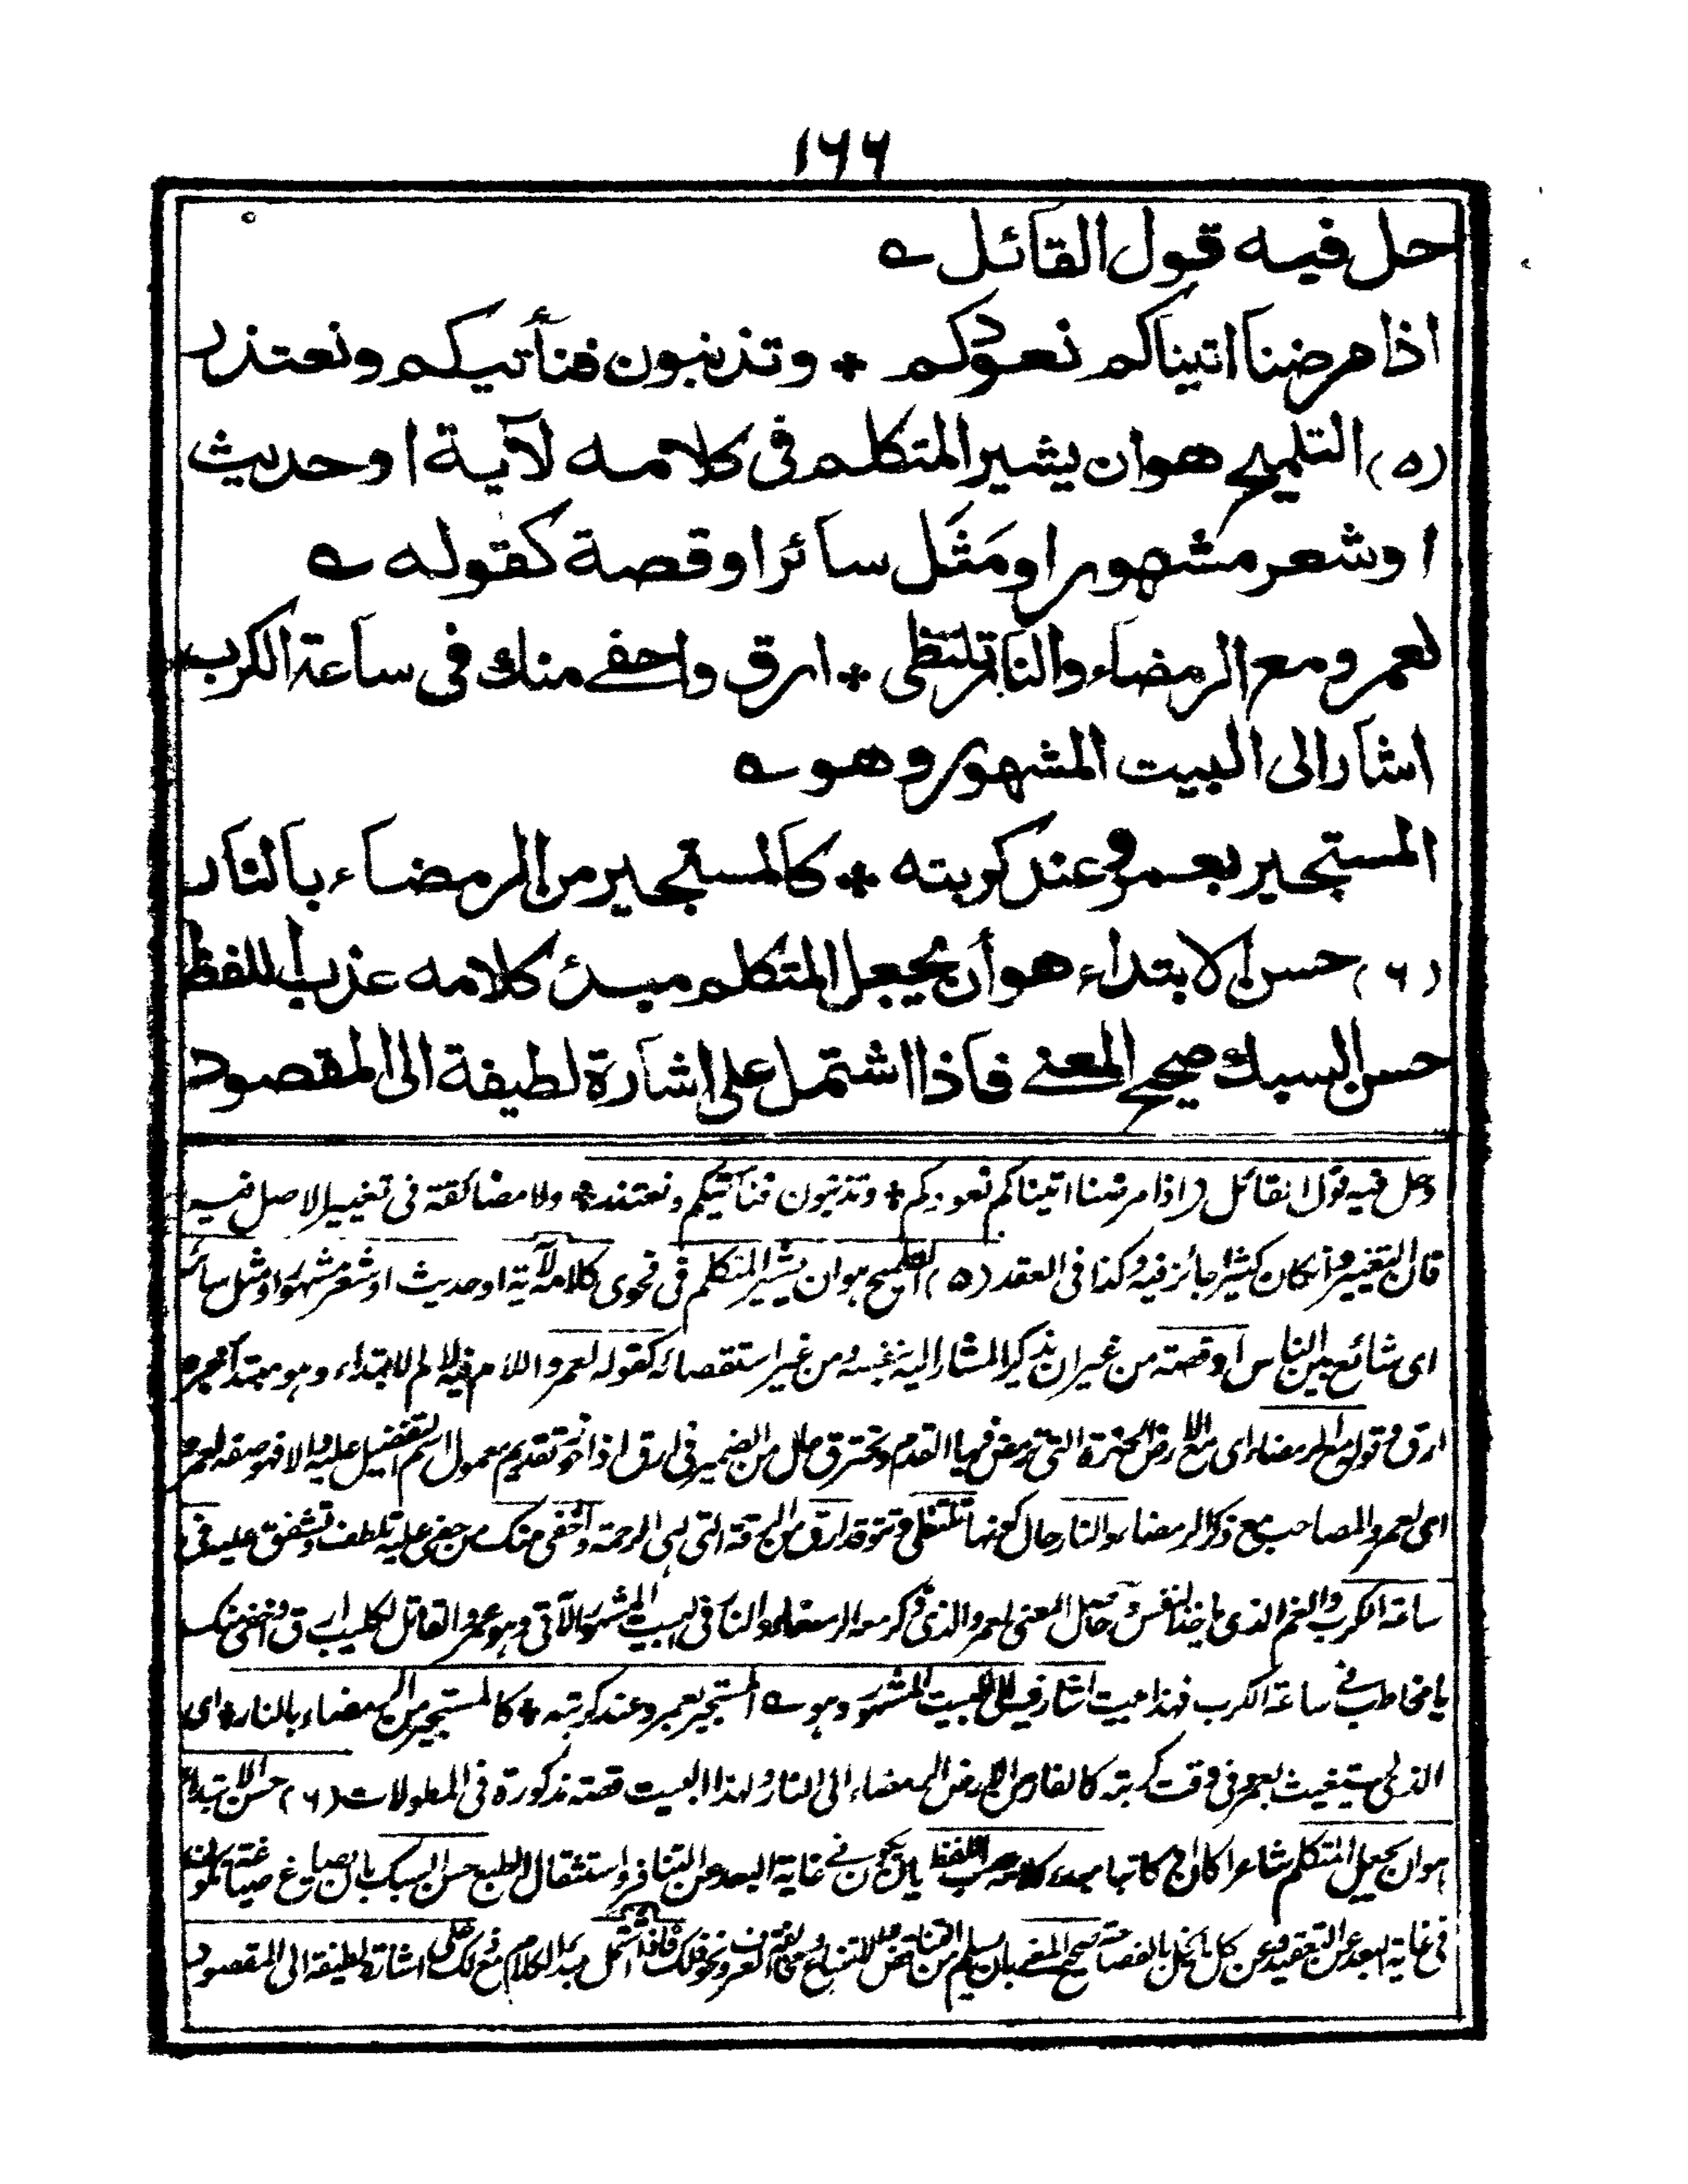 ١٦٦
حل فيه قول القائل ؎
اذا مرضنا اتيناكم نعودكم + وتذنبون فنأتيكم ونعتذر
(٥) التلميح هو ان يشير المتكلم فى كلامه لآية او حديث
او شعر مشهور او مَثَل سائر او قصة كقوله ؎
لعمرو مع الرمضاء والنار تلتظى + ارق واحفے منك فى ساعة الكرب
اشار الى البيت المشهور وهو ؎
المستجير بعمرو عند كربته + كالمستجير من الرمضاء بالنار
(٦) حسن الابتداء هو أن يجعل المتكلم مبدئ كلامه عذب اللفظ
حسن السبك صحيح المعنے فاذا اشتمل على اشارة لطيفة الى المقصود
وحل فيه قول القائل اذا مرضنا اتيناكم نعودكم + وتذنبون فنأتيكم ونعتذر + ولا مضائقة فى تغيير الاصل فيه
فان التغيير وان كان كثيرا جائز فيه وكذا فى العقد (٥) التلميح هو ان يشير المتكلم فى فحوى كلامه لآية او حديث او شعر مشهور او مثل سائر
اى شائع بين الناس او قصة من غير ان يذكر المشار اليه بنفسه ومن غير استقصائه كقوله لعمرو اللام فيه لام الابتداء وهو مبتدأ خبره
ارق وقوله مع الرمضاء اى مع الارض الحارة التى ترمض فيها القدم وتحترق حال من الضمير فى ارق اذا جوز تقديم معمول اسم التفضيل عليه والا فهو صفة لعمرو
اى لعمرو المصاحب مع ذكر الرمضاء والنار حال كونها تلتظى وتتوقد ارق من الرقة التى هى الرحمة واحفى منك من حفى عليه تلطف وتشفق عليه فى
ساعة الكرب والغم الذى ياخذ النفس وحاصل المعنى لعمرو الذى ذكر معه الرمضاء والنار فى البيت المشهور الآتى وهو عمرو القاتل لكليب ارق واحفى منك
يا مخاطب فى ساعة الكرب فهذا بيت اشار فيه الى البيت المشهور وهو ؎ المستجير بعمرو عند كربته + كالمستجير من الرمضاء بالنار + اى
الذى يستغيث بعمرو فى وقت كربته كالفار من الارض الرمضاء الى النار ولهذا البيت قصة مذكورة فى المطولات (٦) حسن الابتداء
هو ان يجعل المتكلم شاعرا كان او كاتبا مبدء كلامه عذب اللفظ بان يكون فى غاية البعد عن التنافر واستثقال الطبع حسن السبك بان يصاغ صياغة تكون
فى غاية البعد عن التعقيد وعن كل ما يخل بالفصاحة صحيح المعنے بان يسلم من التناقض والامتناع ومخالفة العرف ونحو ذلك فاذا اشتمل مبدأ الكلام مع ذلك على اشارة لطيفة الى المقصود